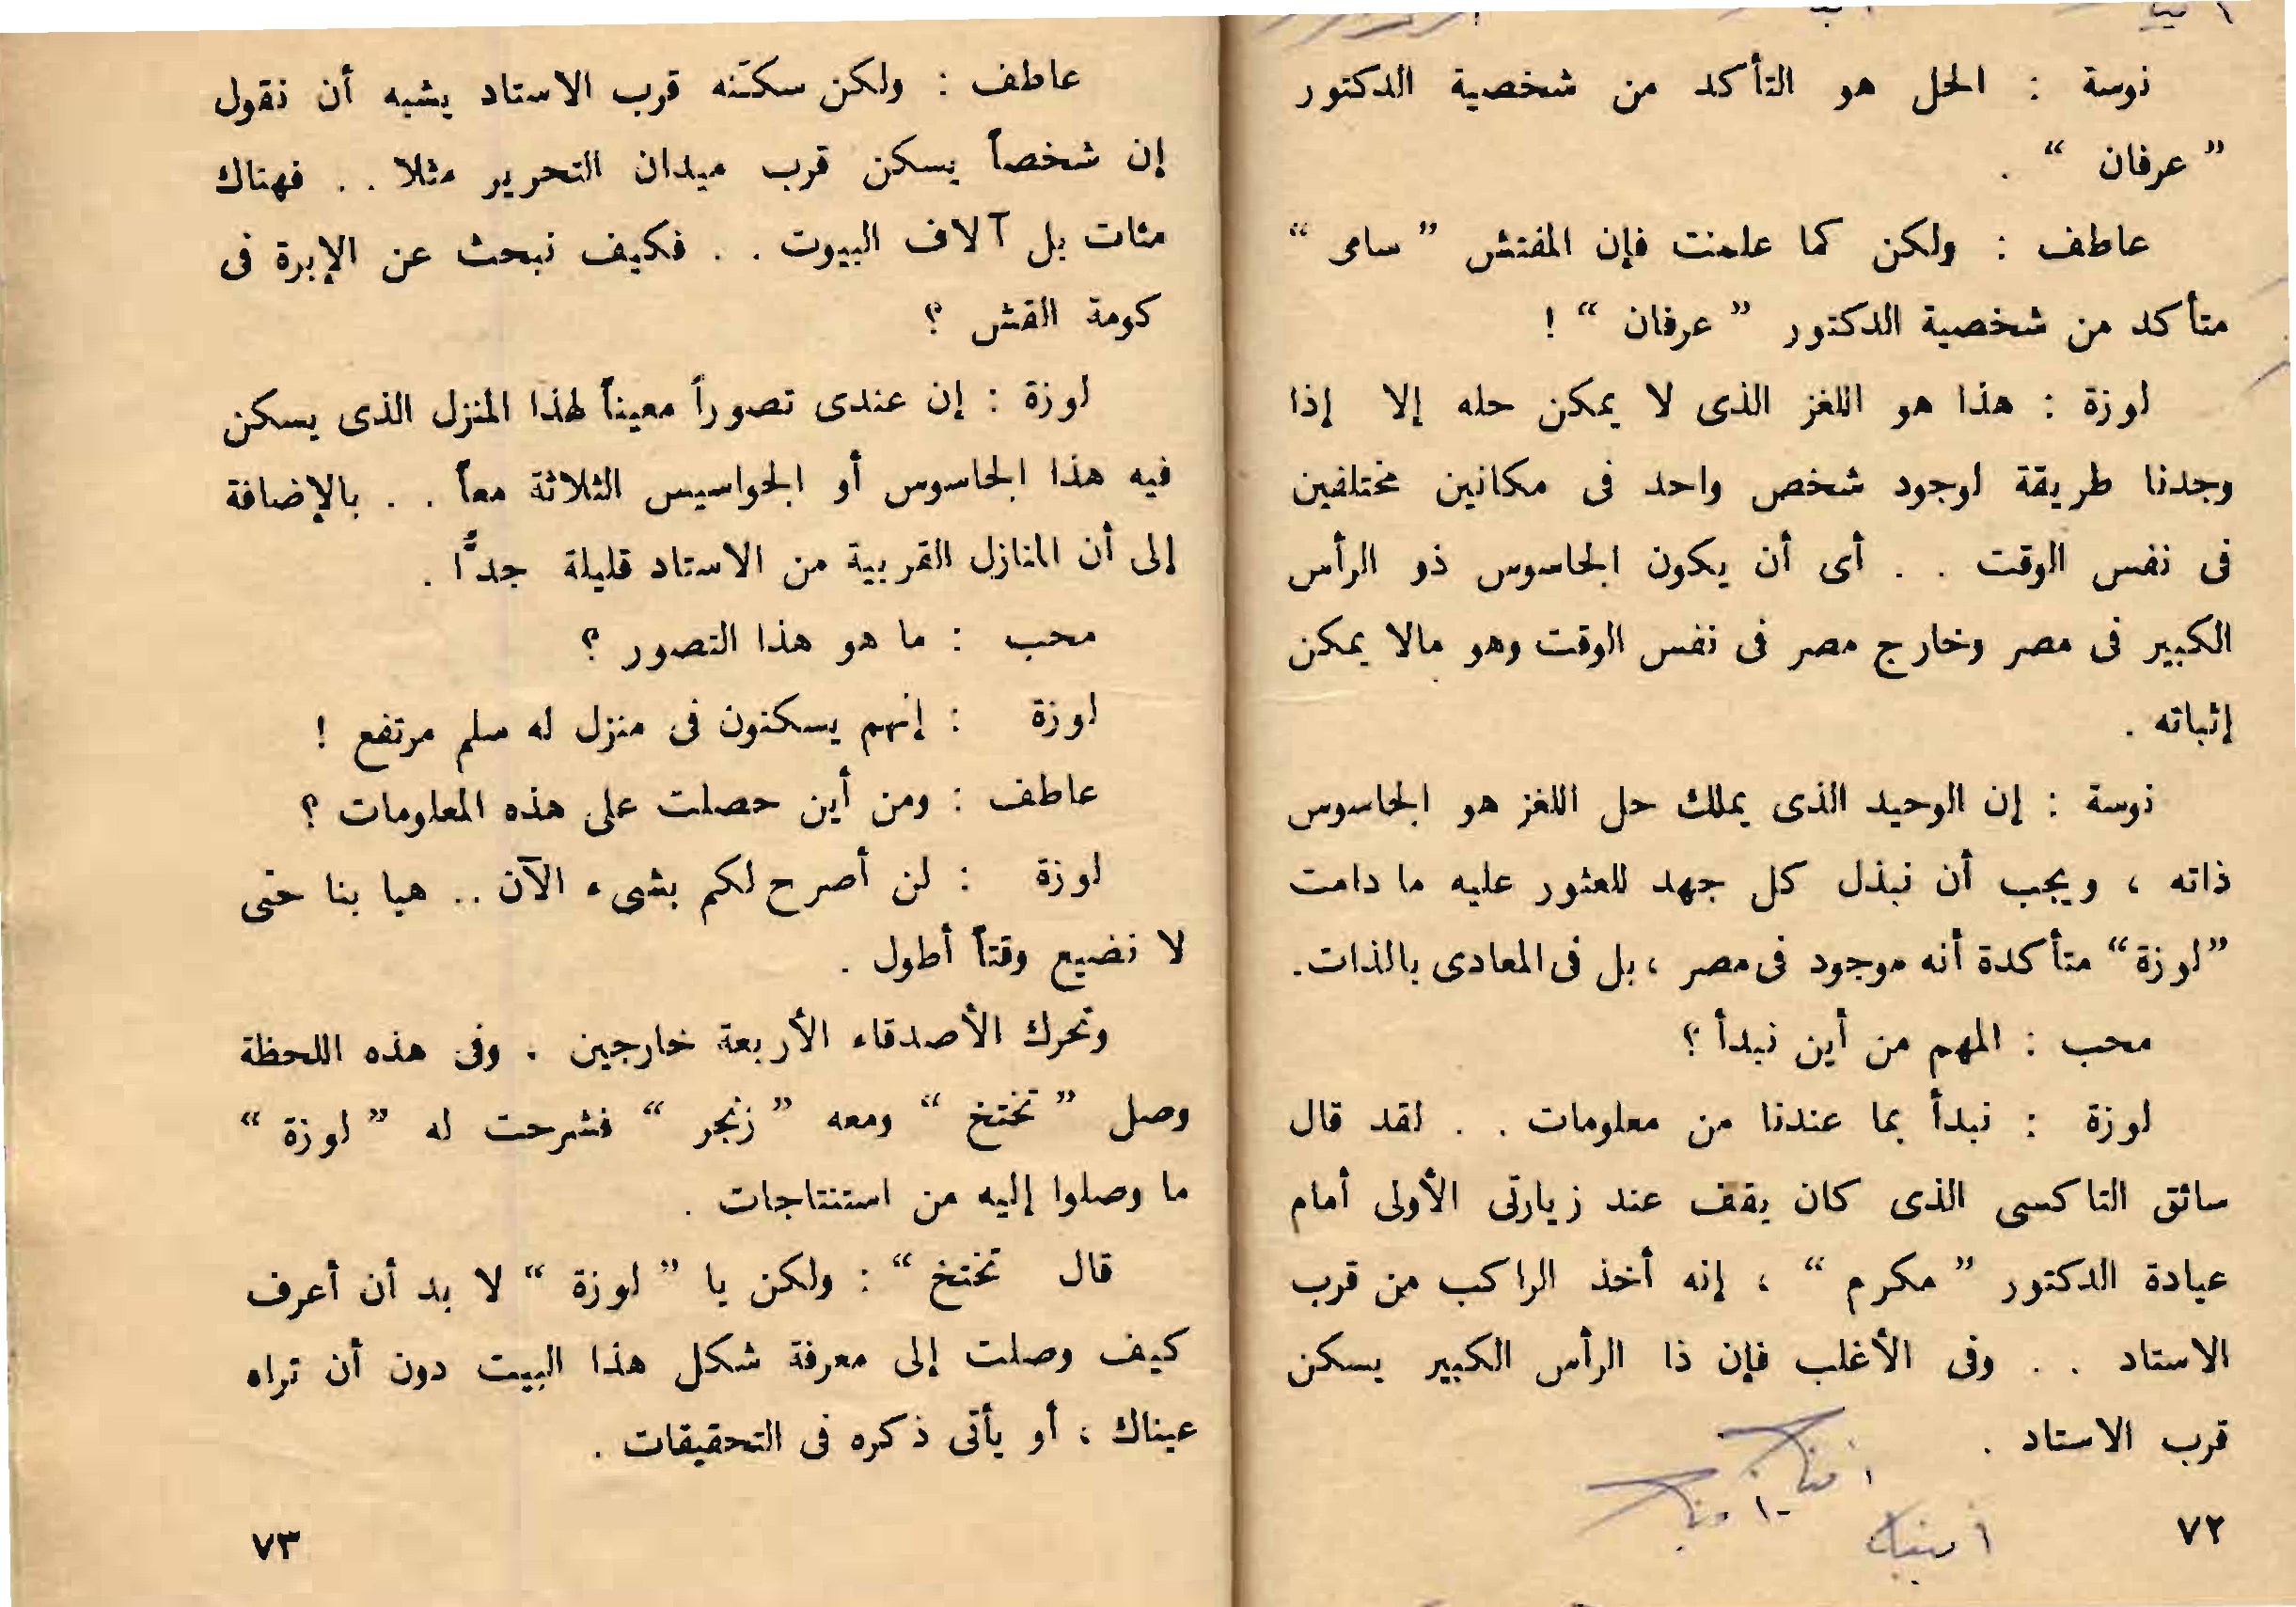 نوسة : الحل هو التأكد من شخصية الدكتور
” عرفان “ .
عاطف : ولكن كما علمت فإن المفتش ” سامى “
متأكد من شخصية الدكتور ” عرفان “ !
لوزة : هذا هو اللغز الذى لا يمكن حله إلا إذا
وجدنا طريقة لوجود شخص واحد فى مكانين مختلفين
فى نفس الوقت . . أى أن يكون الجاسوس ذو الرأس
الكبير فى مصر وخارج مصر فى نفس الوقت وهو مالا يمكن
إثباته .
نوسة : إن الوحيد الذى يملك حل اللغز هو الجاسوس
ذاته ، ويجب أن نبذل كل جهد للعثور عليه ما دامت
”لوزة“ متأكدة أنه موجود فى مصر ، بل فى المعادى بالذات.
محب : المهم من أين نبدأ ؟
لوزة : نبدأ بما عندنا من معلومات . . لقد قال
سائق التاكسى الذى كان يقف عند زيارتى الأولى أمام
عيادة الدكتور ” مكرم “ ، إنه أخذ الراكب من قرب
الاستاد . . وفى الأغلب فإن ذا الرأس الكبير يسكن
قرب الاستاد .
٧٢
عاطف : ولكن سكنه قرب الاستاد يشبه أن نقول
إن شخصاً يسكن قرب ميدان التحرير مثلا . . فهناك
مئات بل آلاف البيوت . . فكيف نبحث عن الإبرة فى
كومة القش ؟
لوزة : إن عندى تصوراً معيناً لهذا المنزل الذى يسكن
فيه هذا الجاسوس أو الجواسيس الثلاثة معاً . . بالإضافة
إلى أن المنازل القريبة من الاستاد قليلة جدًّا .
محب : ما هو هذا التصور ؟
لوزة : إنهم يسكنون فى منزل له سلم مرتفع !
عاطف : ومن أين حصلت على هذه المعلومات ؟
لوزة : لن أصرح لكم بشىء الآن .. هيا بنا حتى
لا نضيع وقتاً أطول .
وتحرك الأصدقاء الأربعة خارجين . وفى هذه اللحظة
وصل ” تختخ “ ومعه ” زنجر “ فشرحت له ” لوزة “
ما وصلوا إليه من استنتاجات .
قال تختخ “ : ولكن يا ” لوزة “ لا بد أن أعرف
كيف وصلت إلى معرفة شكل هذا البيت دون أن تراه
عيناك ، أو يأتى ذكره فى التحقيقات .
٧٣